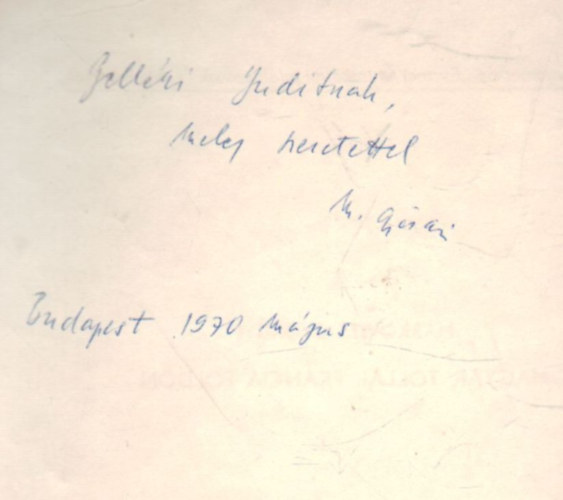 Zelléri Juditnak,
Meleg szeretettel
M.
Budapest 1970 május